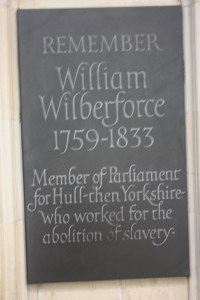 REMEMBER
William
Wilberforce
1759-1833
Member of Parliament
for Hull-then Yorkshire-
who worked for the
abolition of slavery·